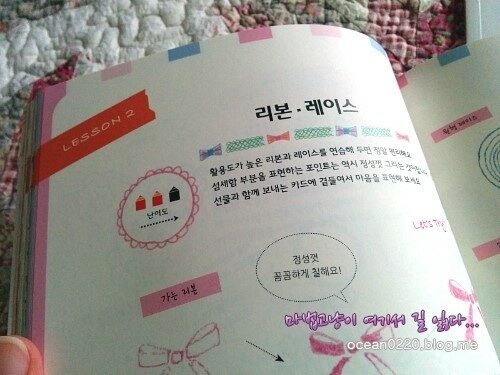 LESSON 2
리본·레이스
활용도가 높은 리본과 레이스를 연습해 두면 정말 편리해요.
섬세한 부분을 표현하는 포인트는 역시 정성껏 그리는 것이랍니다.
선물과 함께 보내는 카드에 곁들여서 마음을 표현해 보세요.
난이도
Let's Try!
정성껏
꼼꼼하게 칠해요!
가는 리본
원형 레이스
마법고냥이 여기서 길 잃다...
ocean0220.blog.me